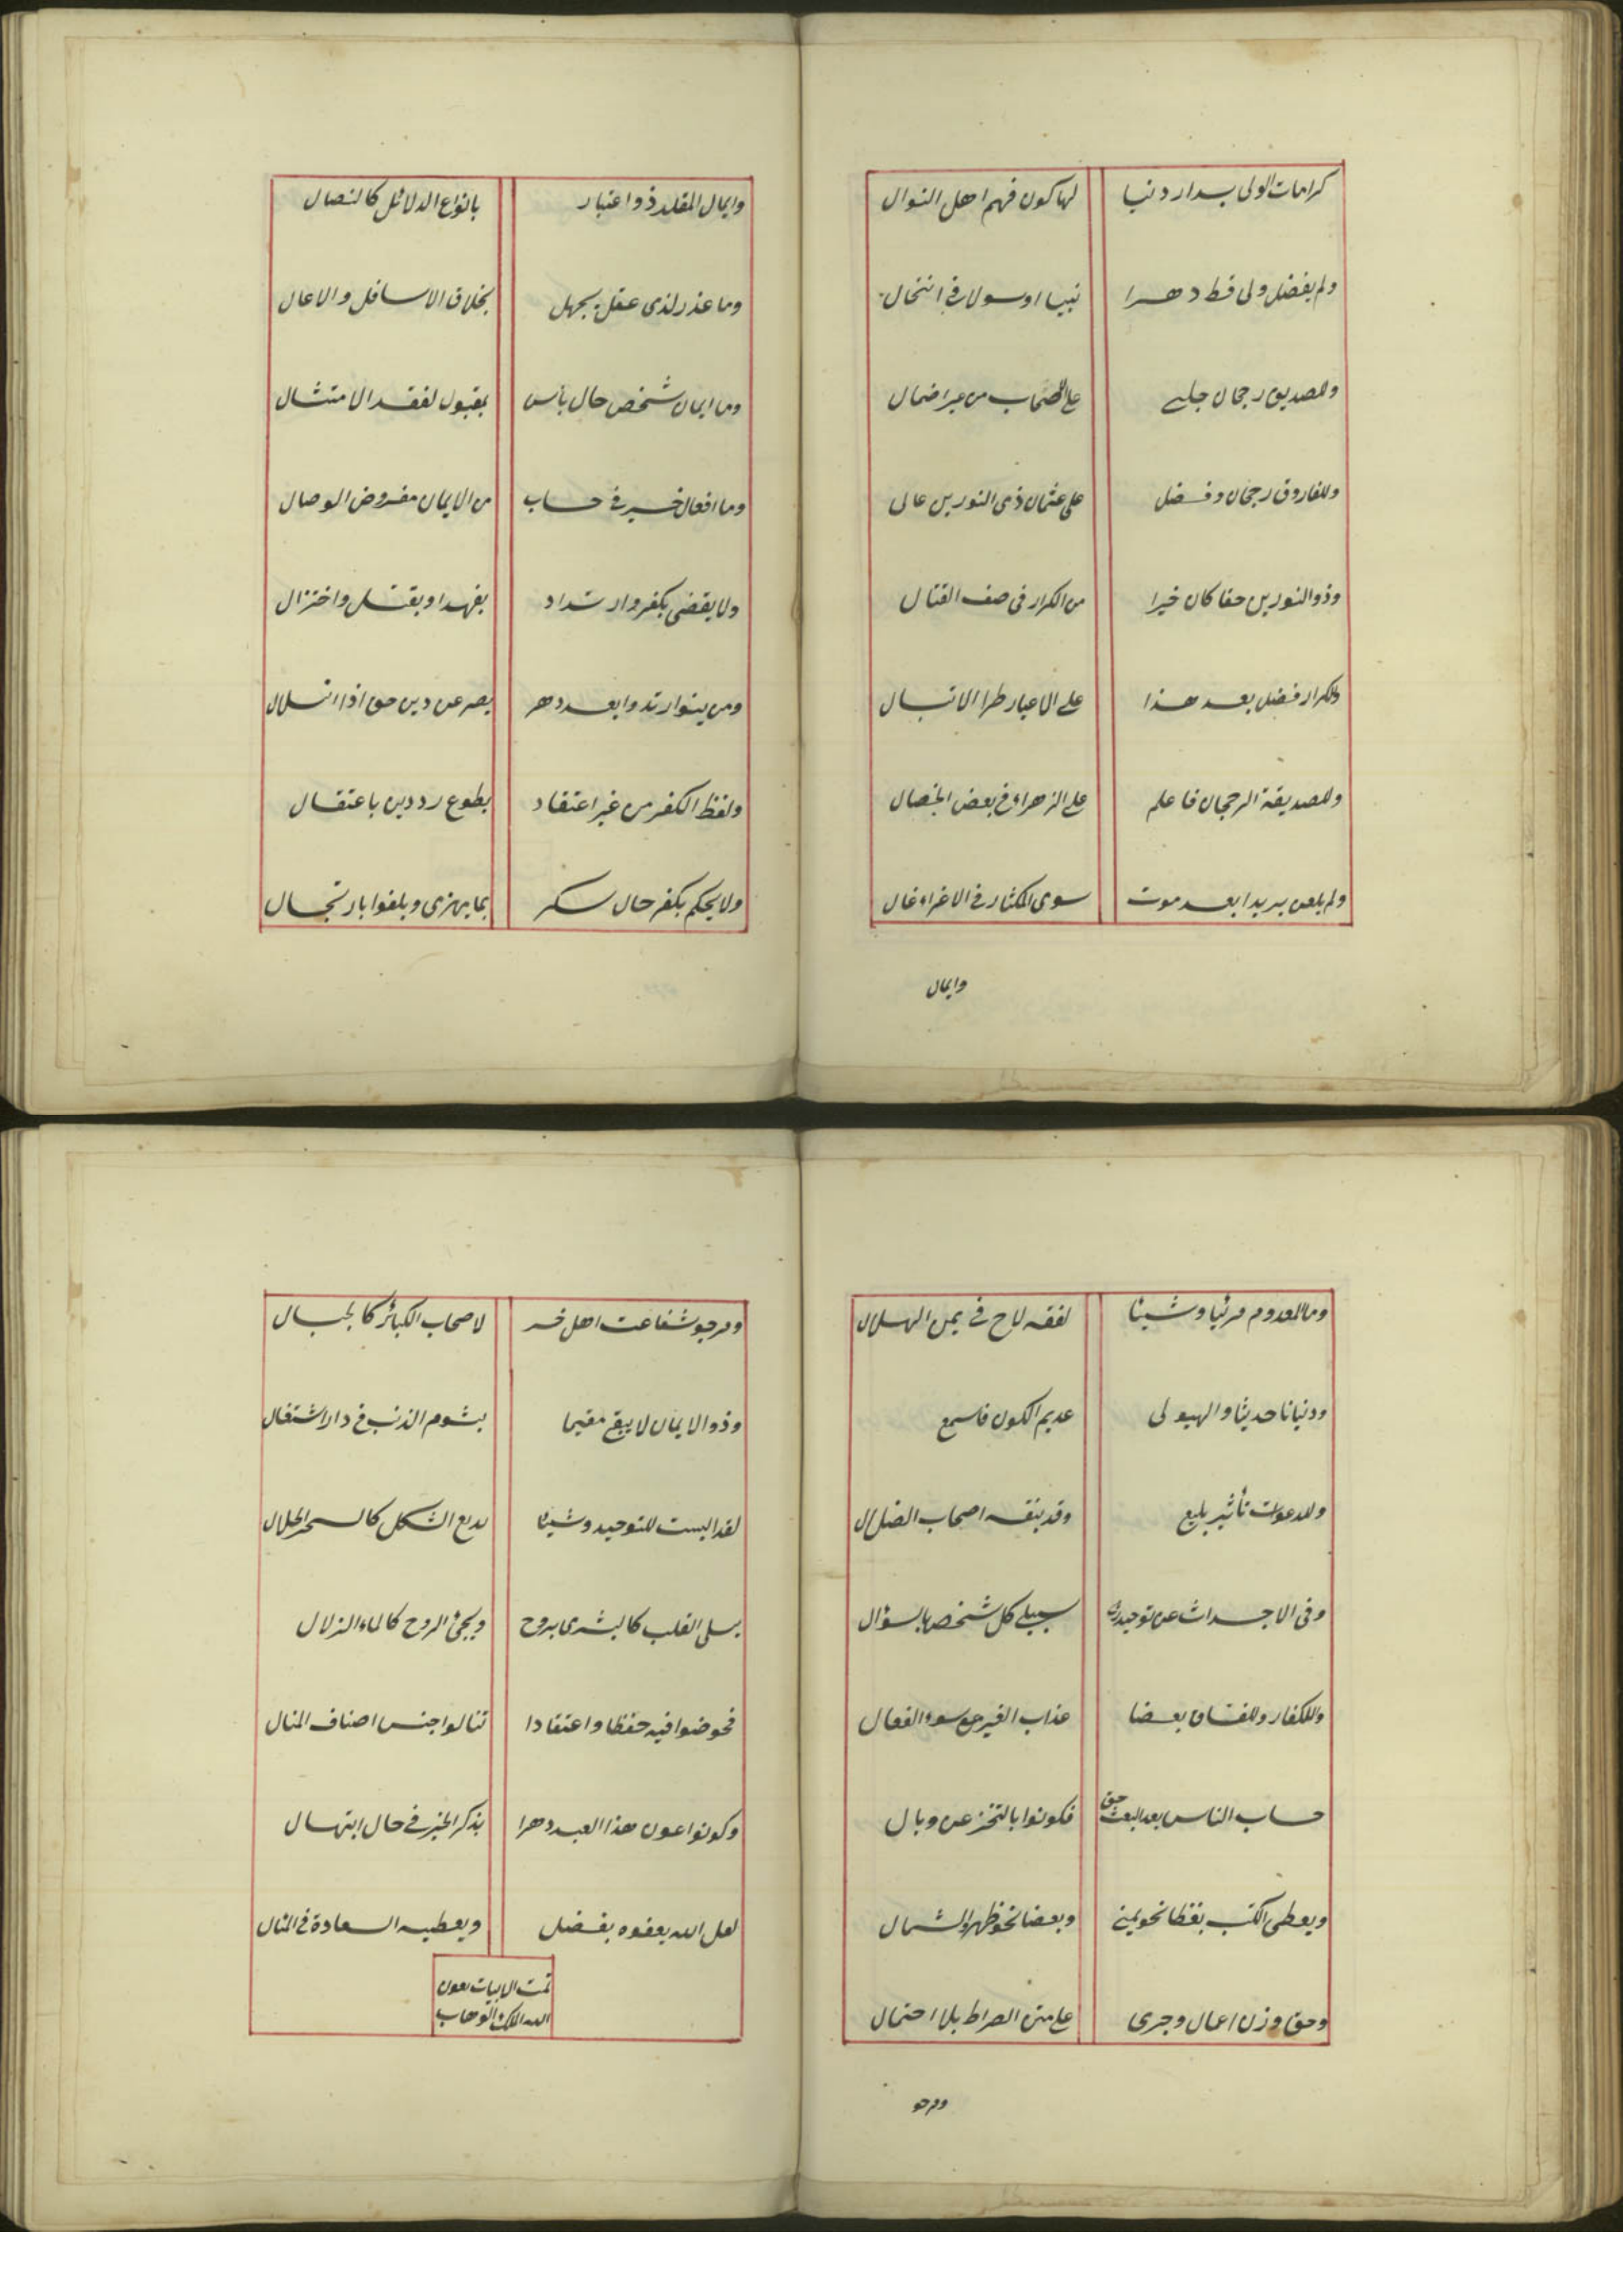 كرامات الولى بدار دنيا لها كون فهم اهل النوال
ولم يفضل ولى قط دهرا نبيا او رسولا فى انتحال
وللصديق رجحان جلى على الاصحاب من غير احتمال
وللفاروق رجحان وفضل على عثمان ذى النورين عالى
وذو النورين حقا كان خيرا من الكرار فى صف القتال
وللكرار فضل بعد هذا على الاغيار طرا لاتبال
وللصديقة الرجحان فاعلم على الزهراء فى بعض الخصال
ولم يلعن يزيدا بعد موت سوى المكثار فى الاغراء غال
وايمان
وايمان المقلد ذو اعتبار بانواع الدلائل كالنصال
وما عذر لذى عقل بجهل بخلاق الاسافل والاعال
وما ايمان شخص حال باس بمقبول لفقد الامتثال
وما افعال خير فى حساب من الايمان مفروض الوصال
ولا يقضى بكفر وارتداد بعهر او بقتل واختزال
ومن ينوا ارتدادا بعد دهر يصر عن دين حق اذا انسلال
ولفظ الكفر من غير اعتقاد بطوع رد دين باعتقال
ولا يحكم بكفر حال سكر بما يهزى ويلغوا بارتجال
وما المعدوم مرئيا وشيئا لفقه لاح فى يمن الهلال
ودنيانا حديثا والهيولى عديم الكون فاسمع
وللدعوات تأثير بليغ وقد ينفيه اصحاب الضلال
وفى الاجداث عن توحيد رب سيبلى كل شخص بالسؤال
وللكفار وللفساق بعضا عذاب القبر مع سوء الفعال
حساب الناس بعد البعث حق فكونوا بالتحرز عن وبال
ويعطى الكتب بعضا نحو يمنى وبعضا نحو ظهر والشمال
وحق وزن اعمال وجرى على متن الصراط بلا احتمال
ومرجو
ومرجو شفاعت اهل خير لاصحاب الكبائر كالجبال
وذو الايمان لا يبقى مقيما بشوم الذنب فى دار اشتغال
لقد البست للتوحيد وشيئا بديع الشكل كالسحر الحلال
يسلى القلب كالبشرى بروح ويحيى الروح كالماء الزلال
فخوضوا فيه حفظا واعتقادا تنالوا جنس اصناف المنال
وكونوا عون هذا العبد دهرا بذكر الخير فى حال ابتهال
لعل الله يعفوه بفضل ويعطيه السعادة فى المنال
تمت الابيات بعون
الله الملك الوهاب